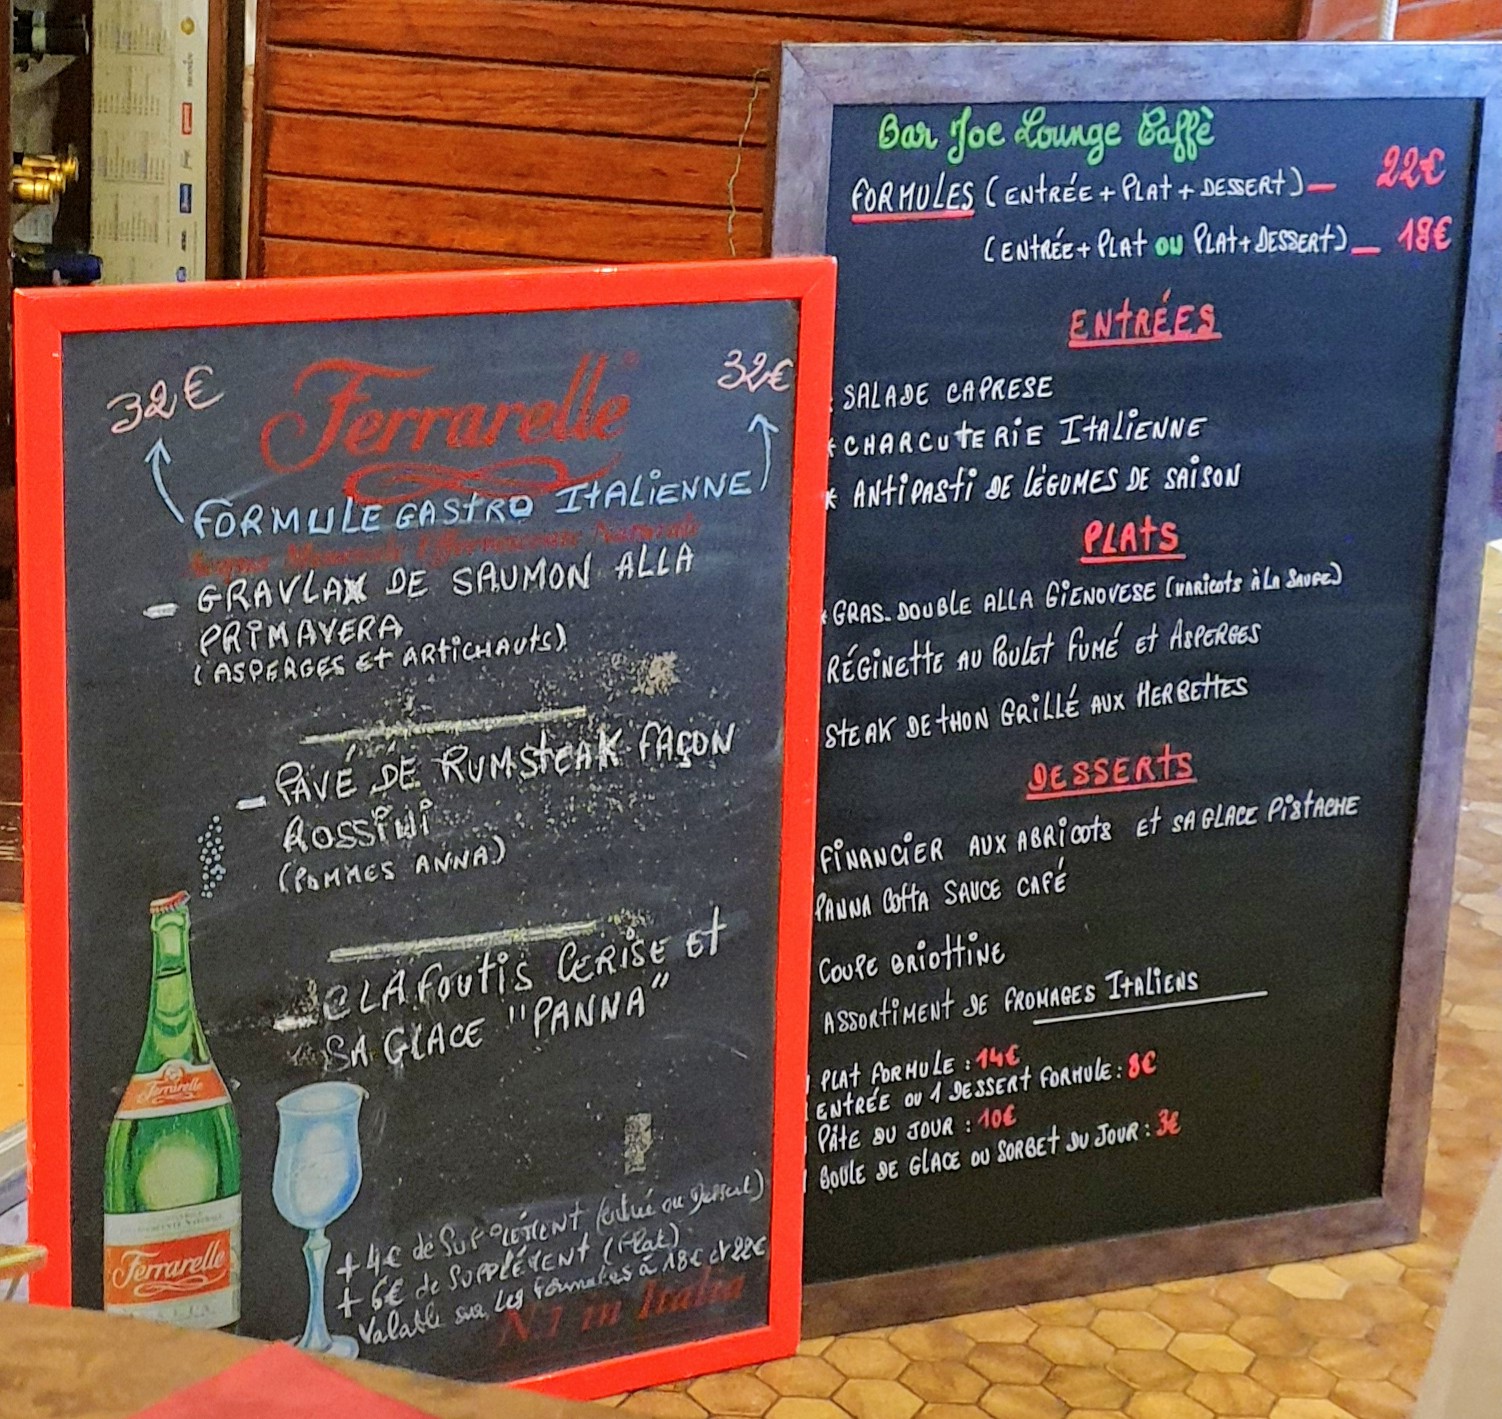 32€
32€
Ferrarelle
FORMULE GASTRO ITALIENNE
- GRAVLAX DE SAUMON ALLA
PRIMAVERA
(ASPERGES Et ARTICHAUTS)
- PAVÉ DE RUMSTEAK FAÇON
ROSSINI
(POMMES ANNA)
- CLAFOUTIS CERISE Et
SA GLACE "PANNA"
Ferrarelle
Ferrarelle
+ 4€ de SUPPLÉMENT (entrée ou Dessert)
+ 6€ de SUPPLÉMENT (Plat)
Valable sur les formules à 18€ et 22€
N.1 in Italia
Bar Joe Lounge Caffè
FORMULES (ENTRÉE + PLAT + DESSERT) — 22€
(ENTRÉE + PLAT OU PLAT + DESSERT) — 18€
ENTRÉES
* SALADE CAPRESE
* CHARCUTERIE ITALIENNE
* ANTIPASTI DE LÉGUMES DE SAISON
PLATS
* GRAS-DOUBLE ALLA GIENOVESE (HARICOTS À LA SAUGE)
RÉGINETTE AU POULET FUMÉ ET ASPERGES
STEAK DE THON GRILLÉ AUX HERBETTES
DESSERTS
FINANCIER AUX ABRICOTS ET SA GLACE PISTACHE
PANNA COTTA SAUCE CAFÉ
COUPE BRIOTTINE
ASSORTIMENT DE FROMAGES ITALIENS
PLAT FORMULE : 14€
ENTRÉE OU 1 DESSERT FORMULE : 8€
PÂTE DU JOUR : 10€
BOULE DE GLACE OU SORBET DU JOUR : 3€